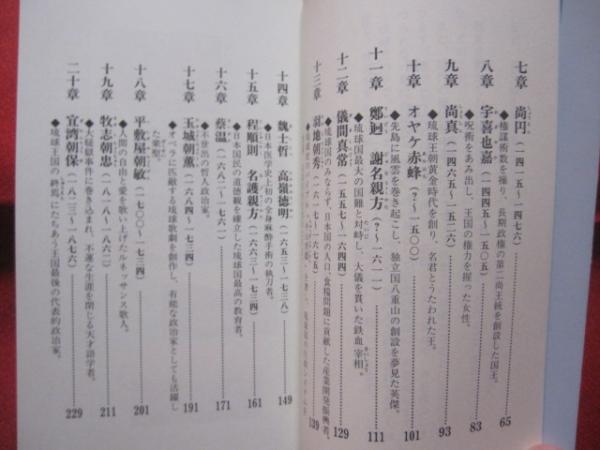 七章 尚円(一四一五〜一四七六)
◆権謀術数を操り、長期政権の第二尚王統を創設した国王。 65
八章 宇喜也嘉(一四四五〜一五〇五)
◆呪術をあみ出し、王国の権力を握った女性。 83
九章 尚真(一四六五〜一五二六)
◆琉球王朝黄金時代を創り、名君とうたわれた王。 93
十章 オヤケ赤蜂(?〜一五〇〇)
◆先島に風雲を巻き起こし、独立国八重山の創設を夢見た英傑。 101
十一章 鄭迵 謝名親方(?〜一六一一)
◆琉球国最大の国難と対峙し、大儀を貫いた鉄血宰相。 111
十二章 儀間真常(一五五七〜一六四四)
◆琉球国のみならず、日本国の人口、食糧問題に貢献した産業開発振興者。 129
十三章 羽地朝秀(一六一七〜一六七五)
139
十四章 魏士哲 高嶺徳明(一六五三〜一七三八)
◆日本医学史上初の全身麻酔手術の執刀者。 149
十五章 程順則 名護親方(一六六三〜一七三四)
◆日本国民の道徳観を確立した琉球国最高の教育者。 161
十六章 蔡温(一六八二〜一七六一)
◆不世出の哲人政治家。 171
十七章 玉城朝薫(一六八四〜一七三四)
◆オペラに匹敵する琉球歌劇を創作し、有能な政治家としても活躍し
た楽聖。 191
十八章 平敷屋朝敏(一七〇〇〜一七三四)
◆人間の自由と愛を歌い上げたルネッサンス歌人。 201
十九章 牧志朝忠(一八一八〜一八六二)
◆大疑獄事件に巻き込まれ、不運な生涯を閉じる天才語学者。 211
二十章 宜湾朝保(一八二三〜一八七六)
◆琉球王国の終焉にたちあう王国最後の代表的政治家。 229